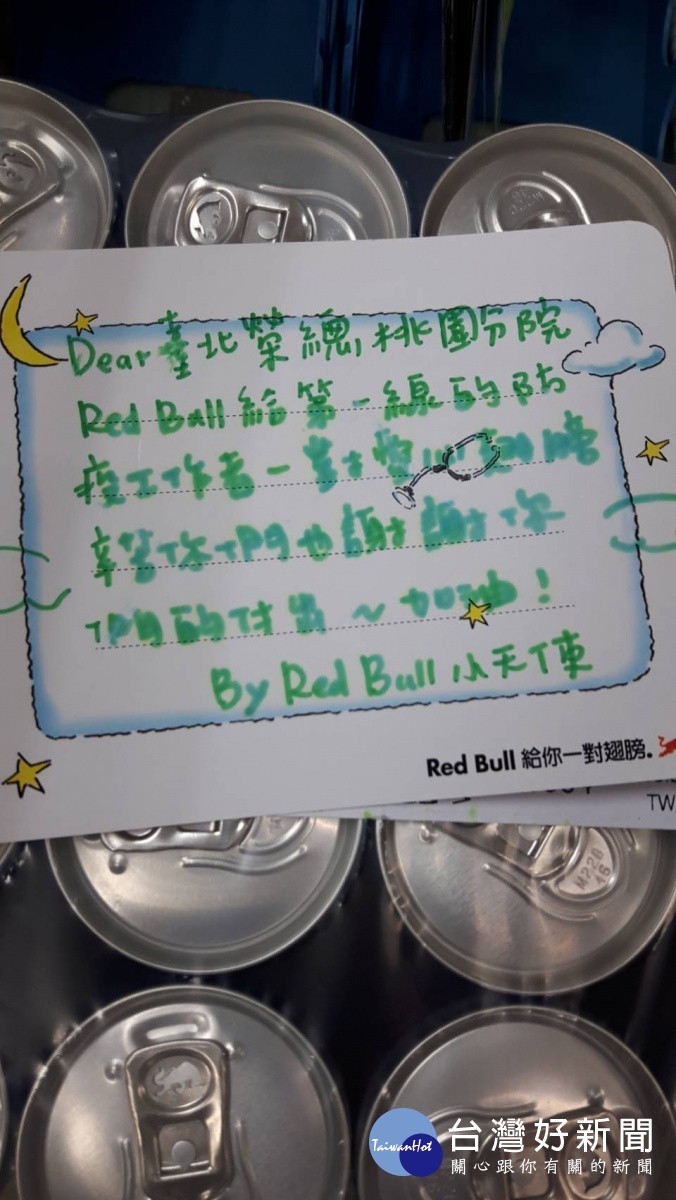 Dear 臺北榮總桃園分院
Red Bull 給第一線的防
疫工作者一對愛心翅膀
辛苦你們也謝謝你
們的付出~加油!
By Red Bull 小天使
Red Bull 給你一對翅膀.
TW
M228
46
TaiwanHot
台灣好新聞
關心跟你有關的新聞